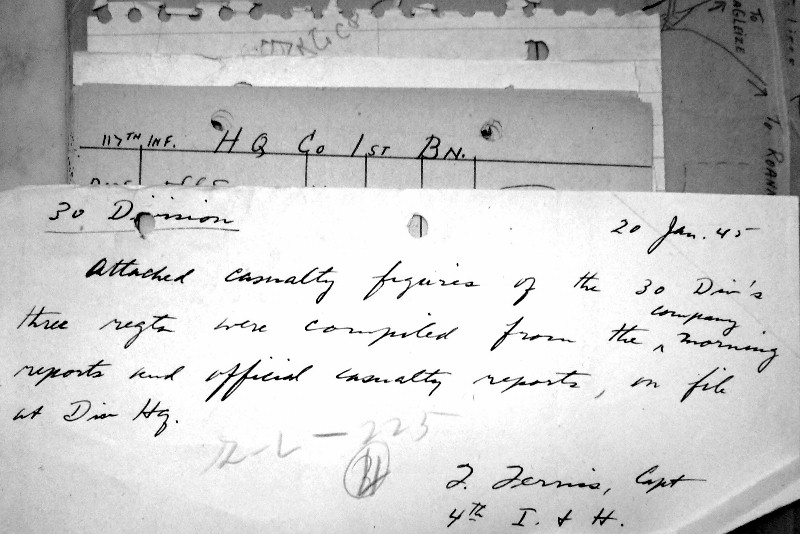 D
To
AGLEIZE
To ROANN
117TH INF. HQ Co 1ST BN.
30 Division
20 Jan. 45
Attached casualty figures of the 30 Div's
company
three regts were compiled from the ^ morning
reports and official casualty reports, on file
at Div Hq.
R-L-225
H
J. Ferriss, Capt
4th I. & H.